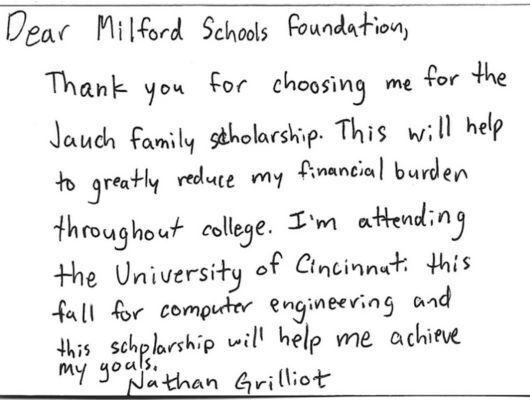 Dear Milford Schools Foundation,
Thank you for choosing me for the
Jauch family scholarship. This will help
to greatly reduce my financial burden
throughout college. I'm attending
the University of Cincinnati this
fall for computer engineering and
this scholarship will help me achieve
my goals.
Nathan Grilliot